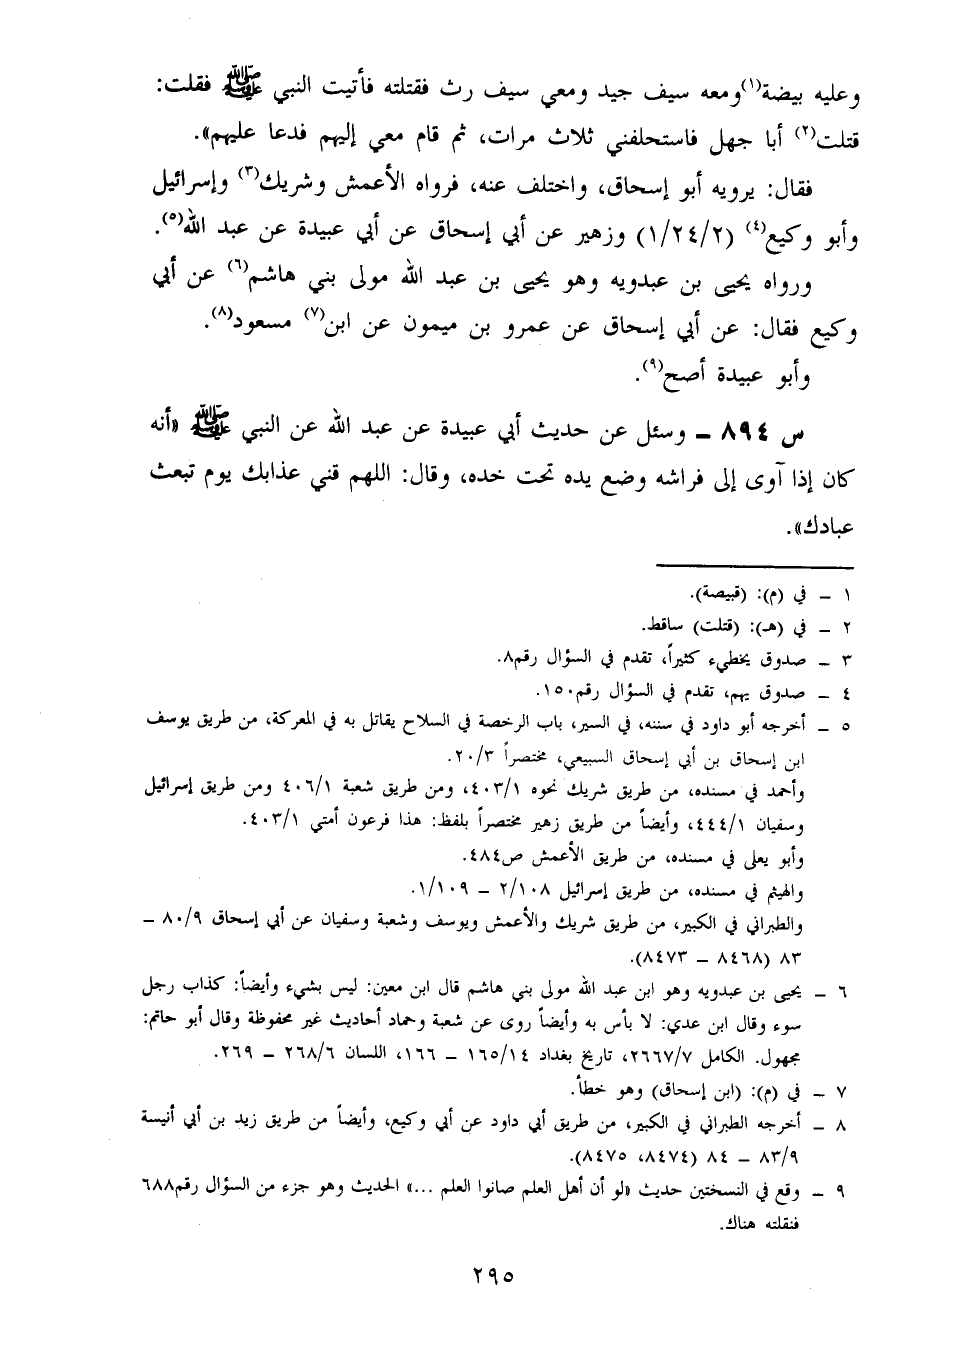 وعليه بيضة(١) ومعه سيف جيد ومعي سيف رث فقتلته فأتيت النبي ﷺ فقلت:
قتلت(٢) أبا جهل فاستحلفني ثلاث مرات، ثم قام معي إليهم فدعا عليهم».
فقال: يرويه أبو إسحاق، واختلف عنه، فرواه الأعمش وشريك(٣) وإسرائيل
وأبو وكيع(٤) (١/٢٤/٢) وزهير عن أبي إسحاق عن أبي عبيدة عن عبد الله(٥).
ورواه يحيى بن عبدويه وهو يحيى بن عبد الله مولى بني هاشم(٦) عن أبي
وكيع فقال: عن أبي إسحاق عن عمرو بن ميمون عن ابن(٧) مسعود(٨).
وأبو عبيدة أصح(٩).
س ٨٩٤ ـ وسئل عن حديث أبي عبيدة عن عبد الله عن النبي ﷺ «أنه
كان إذا آوى إلى فراشه وضع يده تحت خده، وقال: اللهم قني عذابك يوم تبعث
عبادك».
١ ـ في (م): (قبيصة).
٢ ـ في (هـ): (قتلت) ساقط.
٣ ـ صدوق يخطيء كثيراً، تقدم في السؤال رقم٨.
٤ ـ صدوق يهم، تقدم في السؤال رقم١٥٠.
٥ ـ أخرجه أبو داود في سننه، في السير، باب الرخصة في السلاح يقاتل به في المعركة، من طريق يوسف
ابن إسحاق بن أبي إسحاق السبيعي، مختصراً ٢٠/٣.
وأحمد في مسنده، من طريق شريك نحوه ٤٠٣/١، ومن طريق شعبة ٤٠٦/١ ومن طريق إسرائيل
وسفيان ٤٤٤/١، وأيضاً من طريق زهير مختصراً بلفظ: هذا فرعون أمتي ٤٠٣/١.
وأبو يعلى في مسنده، من طريق الأعمش ص٤٨٤.
والهيثم في مسنده، من طريق إسرائيل ٢/١٠٨ ـ ١/١٠٩.
والطبراني في الكبير، من طريق شريك والأعمش ويوسف وشعبة وسفيان عن أبي إسحاق ٨٠/٩ ـ
٨٣ (٨٤٦٨ ـ ٨٤٧٣).
٦ ـ يحيى بن عبدويه وهو ابن عبد الله مولى بني هاشم قال ابن معين: ليس بشيء وأيضاً: كذاب رجل
سوء وقال ابن عدي: لا بأس به وأيضاً روى عن شعبة وحماد أحاديث غير محفوظة وقال أبو حاتم:
مجهول. الكامل ٢٦٦٧/٧، تاريخ بغداد ١٦٥/١٤ ـ ١٦٦، اللسان ٢٦٨/٦ ـ ٢٦٩.
٧ ـ في (م): (ابن إسحاق) وهو خطأ.
٨ ـ أخرجه الطبراني في الكبير، من طريق أبي داود عن أبي وكيع، وأيضاً من طريق زيد بن أبي أنيسة
٨٣/٩ ـ ٨٤ (٨٤٧٤، ٨٤٧٥).
٩ ـ وقع في النسختين حديث «لو أن أهل العلم صانوا العلم ...» الحديث وهو جزء من السؤال رقم٦٨٨
فنقلته هناك.
٢٩٥